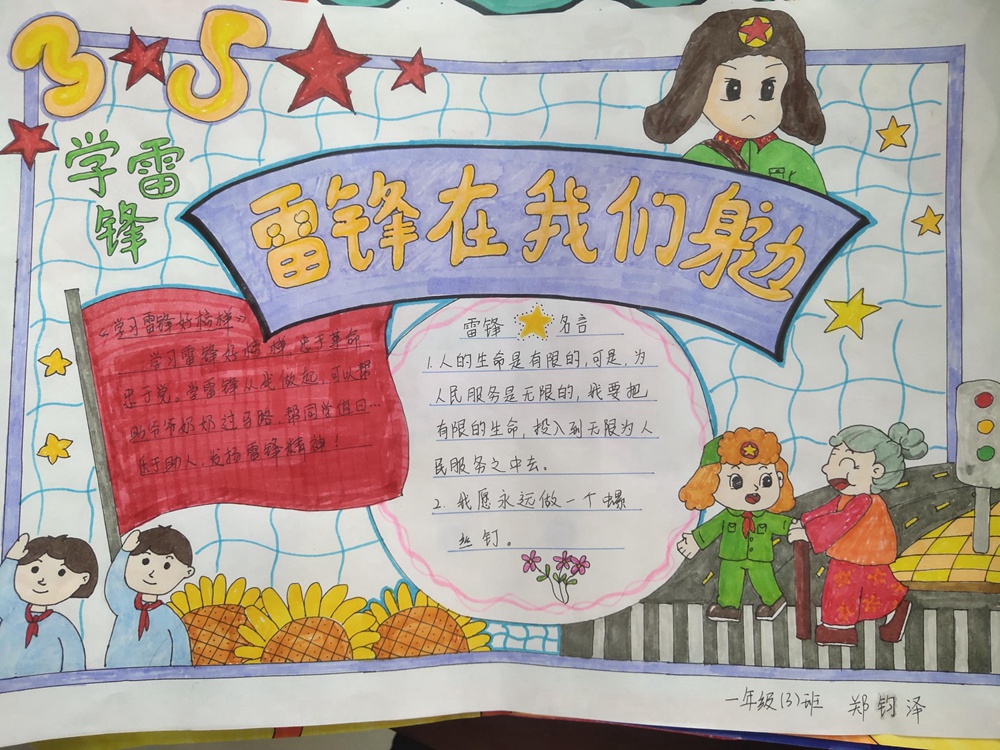 35
学雷
锋
雷锋在我们身边
《学习雷锋好榜样》
学习雷锋好榜样,忠于革命
忠于党。学雷锋从我做起,可以帮
助爷爷奶奶过马路,帮同学值日...
乐于助人,发扬雷锋精神!
雷锋 名言
1.人的生命是有限的,可是,为
人民服务是无限的,我要把
有限的生命,投入到无限为人
民服务之中去。
2.我愿永远做一个螺
丝钉。
一年级(3)班 郑钧泽